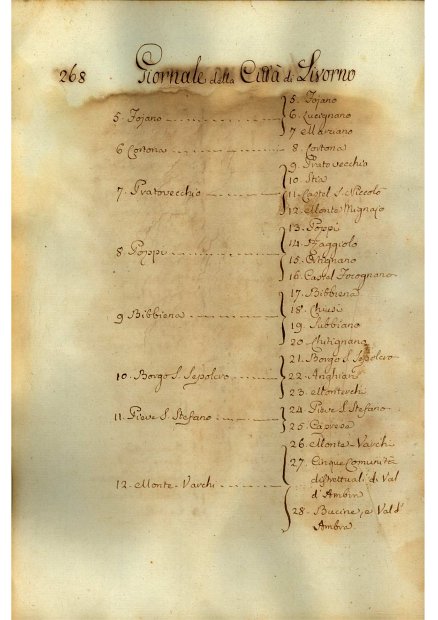 268 Giornale della Città di Livorno
5. Fojano
5. Fojano
6. Lucignano
7. Marciano
6 Cortona
8. Cortona
7. Pratovecchio
9. Pratovecchio
10. Stia
11. Castel S. Niccolo
12. Monte Mignajo
8. Poppi
13. Poppi
14. Raggiolo
15. Ortignano
16. Castel Focognano
9 Bibbiena
17. Bibbiena
18. Chiusi
19. Subbiano
20. Chitignano
10. Borgo S. Sepolcro
21. Borgo S. Sepolcro
22. Anghiari
23. Monterchi
11. Pieve S. Stefano
24. Pieve S. Stefano
25. Caprese
12. Monte-Varchi
26. Monte-Varchi
27. Cinque Comunità
distrettuali di Val
d'Ambra
28. Bucine e Val d'
Ambra